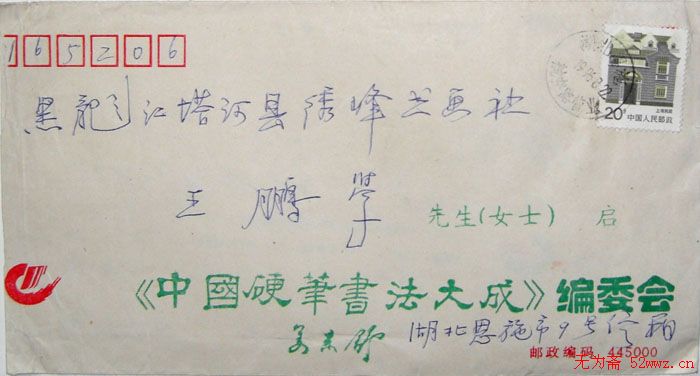 165206
黑龙江塔河县绣峰书画社
20分
上海民居
中国人民邮政
王鹏举
先生(女士) 启
《中國硬筆書法大成》编委会
湖北恩施市9号信箱
邮政编码 445000
无为斋 52wwz.cn